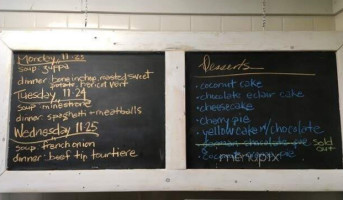 Monday 11.23
soup: zuppa
dinner: bone in chop, roasted sweet
potato, haricot vert
Tuesday 11.24
soup: minestrone
dinner: spaghetti + meatballs
Wednesday 11.25
soup: french onion
dinner: beef tip tourtiere
Desserts
• coconut cake
• chocolate eclair cake
• cheesecake
• cherry pie
• yellow cake w/ chocolate
• german chocolate pie sold out
• coconut cream pie
menupix